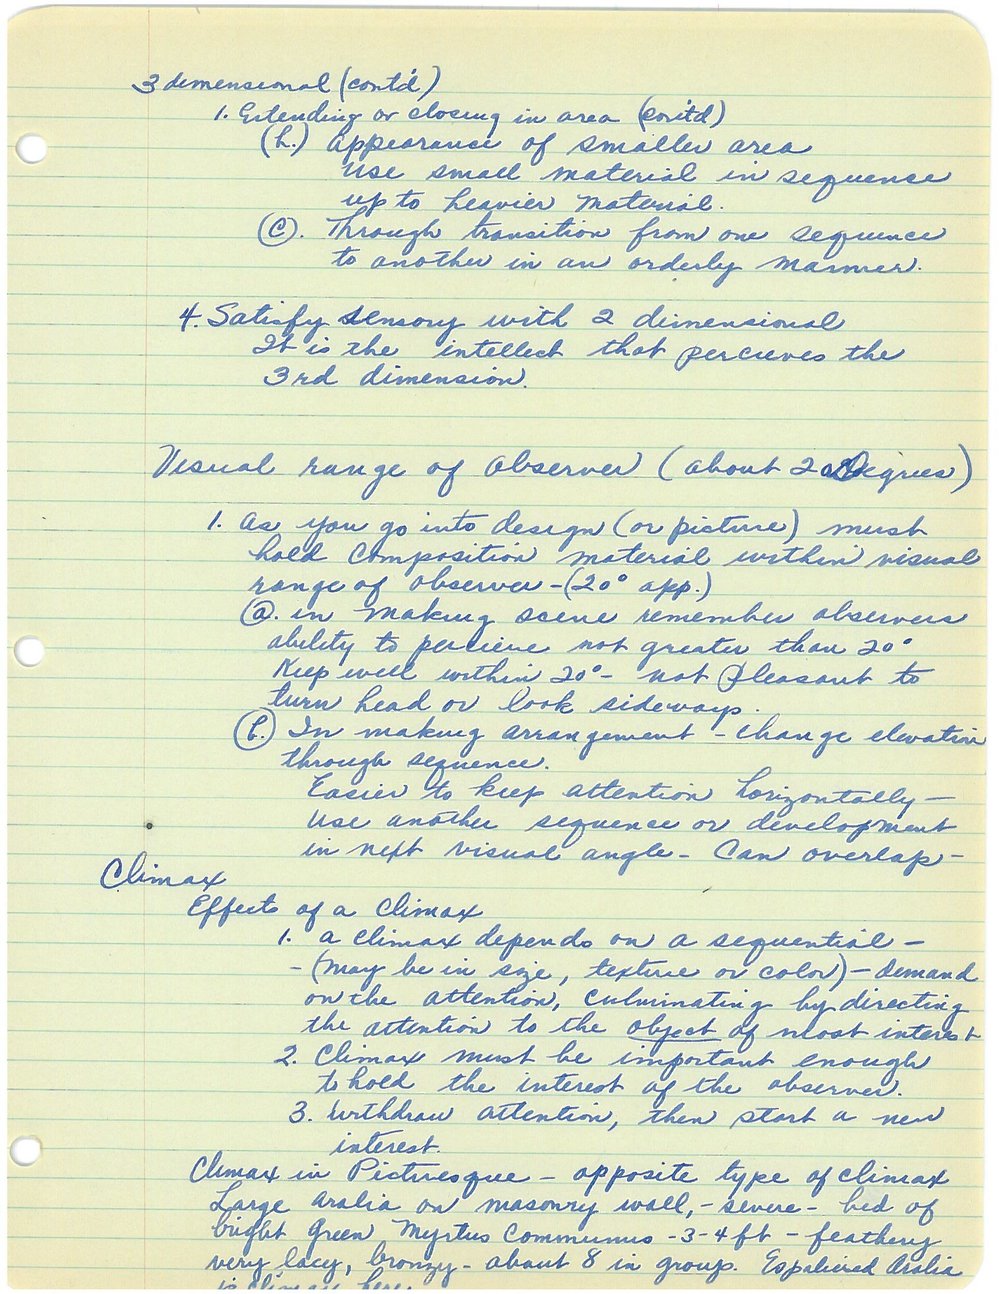 3 dimensional (cont'd)
1. Extending or closing in area (cont'd)
(b.) appearance of smaller area
Use small material in sequence
up to heavier material.
(c). Through transition from one sequence
to another in an orderly manner.
4. Satisfy sensory with 2 dimensional
It is the intellect that percieves the
3rd dimension.
Visual range of observer (about 20 Degrees)
1. As you go into design (or picture) must
hold composition material within visual
range of observer - (20° app.)
(a). in making scene remember observers
ability to percieve not greater than 20°
Keep well within 20° - not pleasant to
turn head or look sideways.
(b.) In making arrangement - change elevation
through sequence.
Easier to keep attention horizontally -
Use another sequence or development
in next visual angle - Can overlap -
Climax
Effects of a Climax
1. a climax depends on a sequential -
- (may be in size, texture or color) - demand
on the attention, culminating by directing
the attention to the object of most interest
2. Climax must be important enough
to hold the interest of the observer.
3. Withdraw attention, then start a new
interest.
Climax in Picturesque - opposite type of climax
Large Aralia on masonry wall, - severe - bed of
bright green Myrtus Communus - 3-4 ft - feathery
very lacy, bronzy - about 8 in group. Espaliered Aralia
is climax here.